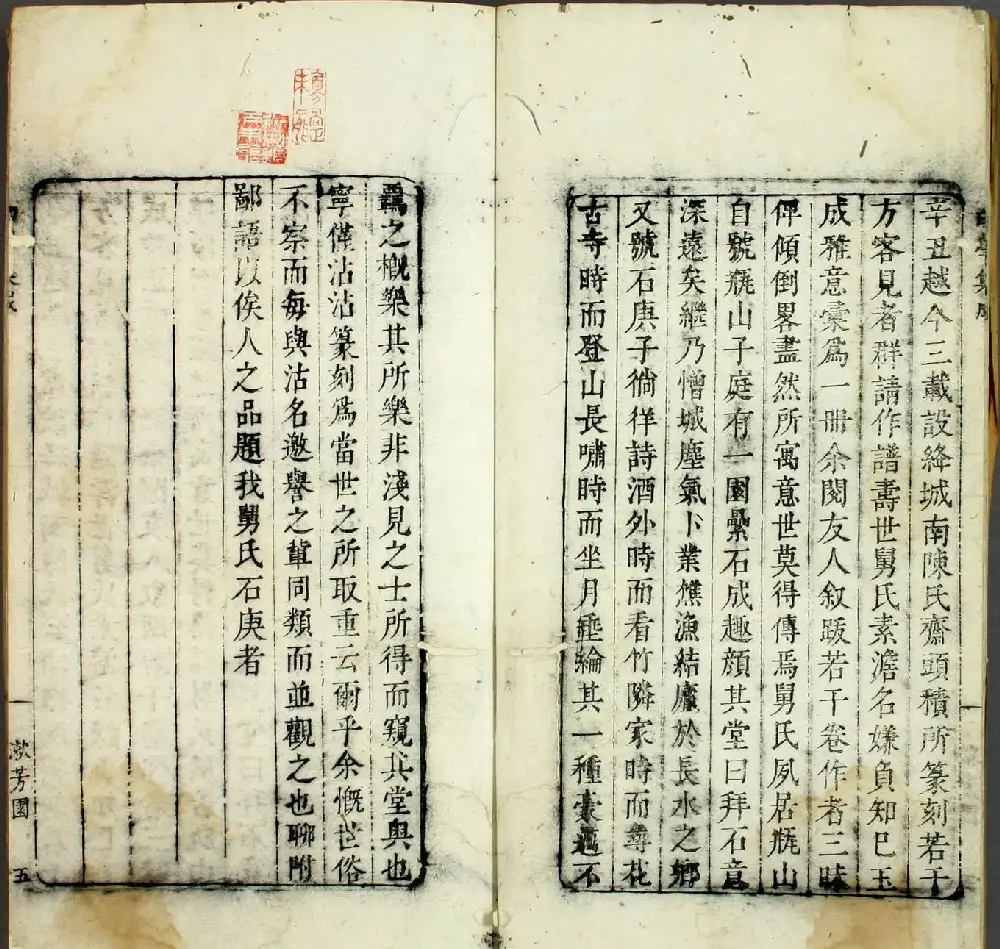 辛丑越今三載設絳城南陳氏齋頭積所篆刻若干
方客見者群請作譜壽世舅氏素澹名嫌負知巳玉
成雅意彙爲一冊余閱友人敘跋若干卷作者三昧
俾傾倒畧盡然所寓意世莫得傳焉舅氏夙居瓶山
自號瓶山子庭有一園壘石成趣顏其堂曰拜石意
深遠矣繼乃憎城塵氣卜業樵漁結廬於長水之鄉
又號石庚子徜徉詩酒外時而看竹隣家時而尋花
古寺時而登山長嘯時而坐月垂綸其一種豪邁不
羈之概樂其所樂非淺見之士所得而窺其堂奧也
寧僅沾沾篆刻爲當世之所取重云爾乎余慨世俗
不察而每與沽名邀譽之輩同類而並觀之也聊附
鄙語以俟人之品題我舅氏石庚者
漱芳園
五